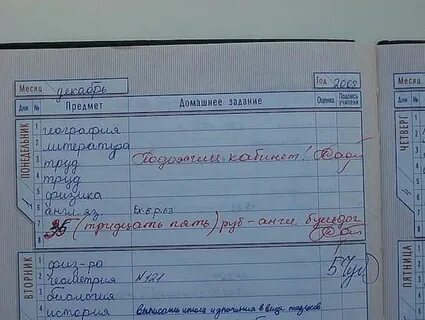 Месяц декабрь Год 2008
Дни № Предмет Домашнее задание Оценка Подпись учителя
ПОНЕДЕЛЬНИК
1 география
2 литература
3 труд Поджигал кабинет!
4 труд
5 физика
6 англ. яз. Ex. 6. p. 63
7 35 (тридцать пять) руб - англ.
8
ВТОРНИК
1 физ-ра 5
2 геометрия N 121
3 биология
4 история Выписать итоги в виде
Месяц
Дни №
ЧЕТВЕРГ
1
2
3
4
5
6
7
8
ПЯТНИЦА
1
2
3
4